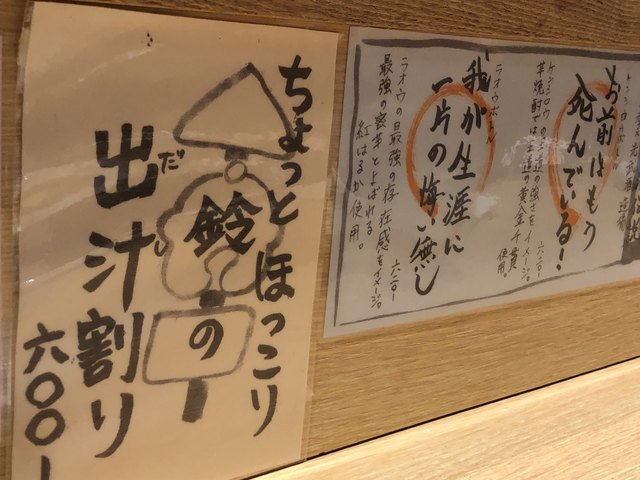 ちょっとほっこり
鈴の
出汁割り
だ
六〇〇ー
お前はもう
死んでいる!
ケンシロウの王道の強さをイメージ。
芋焼酎では王道の黄金千貫
使用。
六二〇ー
我が生涯に
一片の悔い無し
ラオウボトル
ラオウの最強の存在感をイメージ。
最強の蜜芋とよばれる
紅はるか使用。
六二〇ー